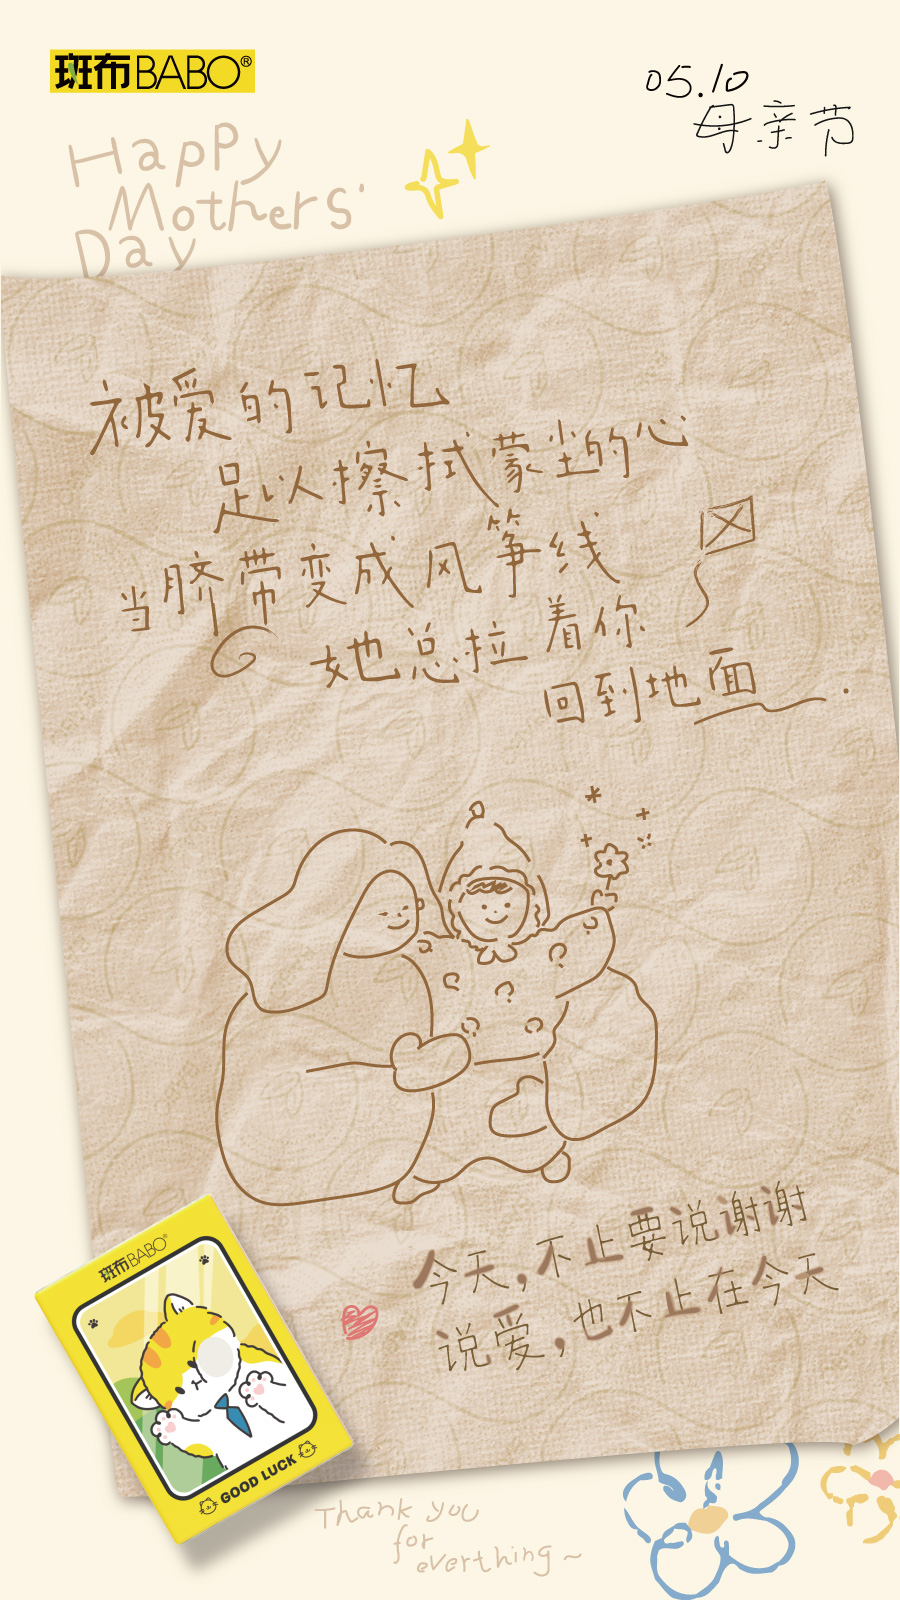 斑布BABO®
05.10
母亲节
Happy
Mothers'
Day
被爱的记忆
足以擦拭蒙尘的心
当脐带变成风筝线
她总拉着你
回到地面.
今天,不止要说谢谢
说爱,也不止在今天
斑布BABO®
GOOD LUCK
Thank you
for
everthing~